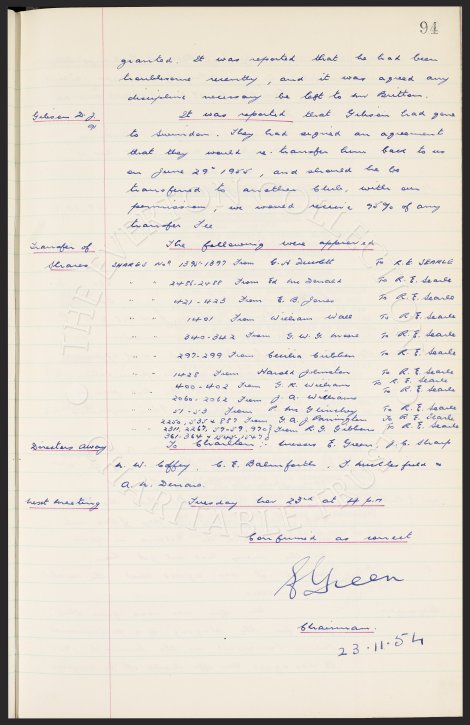 94
granted. It was reported that he had been
troublesome recently, and it was agreed any
discipline necessary be left to Mr Britton.
Gibson D. J. It was reported that Gibson had gone
to Swindon. They had signed an agreement
that they would re-transfer him back to us
on June 29th 1955, and should he be
transferred to another Club, with our
permission, we would receive 95% of any
transfer fee
Transfer of The following were approved
Shares SHARES Nos 1395-1397 From To R.E. SEARLE
" " 2486-2488 From Ed McDonald To R.E. Searle
" " 421-423 From E. B. Jones To R.E. Searle
" " 1401 From William Wall To R.E. Searle
" " 340-342 From G. W. G. To R.E. Searle
" " 297-299 From To R.E. Searle
" " 1428 From Harold Johnston To R.E. Searle
" " 400-402 From G. R. Williams To R.E. Searle
" " 2060-2062 From J. A. Williams To R.E. Searle
" " 51-53 From P. To R.E. Searle
From G. A. J. Pannington To R.E. Searle
From R. G. To R.E. Searle
Directors Away To Charlton: Messrs E. Green, J. C. Sharp
N. W. Coffey, C. E. Balmforth,
A. N. Denaro.
Next Meeting Tuesday Nov 23rd at 4 pm
Confirmed as correct
E Green
Chairman.
23.11.54
THE EVERTON COLLECTION
CHARITABLE TRUST